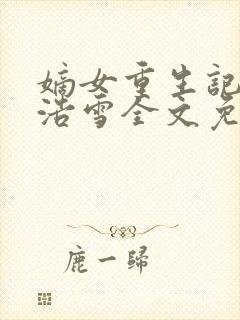 嫡女重生記
浩雪全文免
鹿一歸